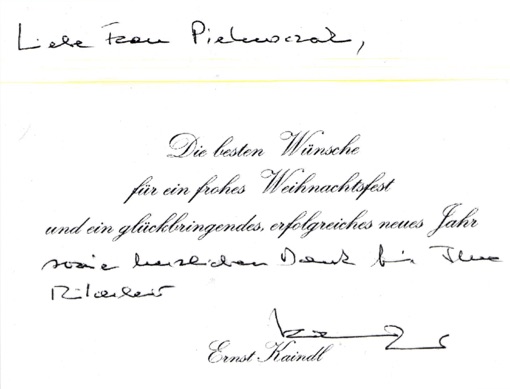 Liebe Frau Piekorczak,
Die besten Wünsche
für ein frohes Weihnachtsfest
und ein glückbringendes, erfolgreiches neues Jahr
sowie herzlichen Dank für Ihre
Mitarbeit
Ernst Kaindl